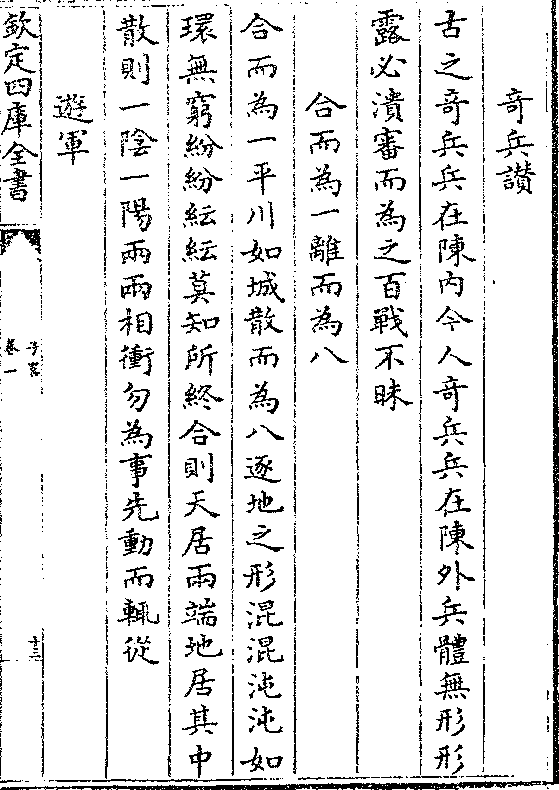 奇兵讃
古之奇兵兵在陳内今人奇兵兵在陳外兵體無形形
露必潰審而為之百戰不昧
合而為一離而為八
合而為一平川如城散而為八逐地之形混混沌沌如
環無窮紛紛紜紜莫知所終合則天居兩端地居其中
散則一陰一陽兩兩相衝勿為事先動而輒從
遊軍
欽定四庫全書
卷一
十三